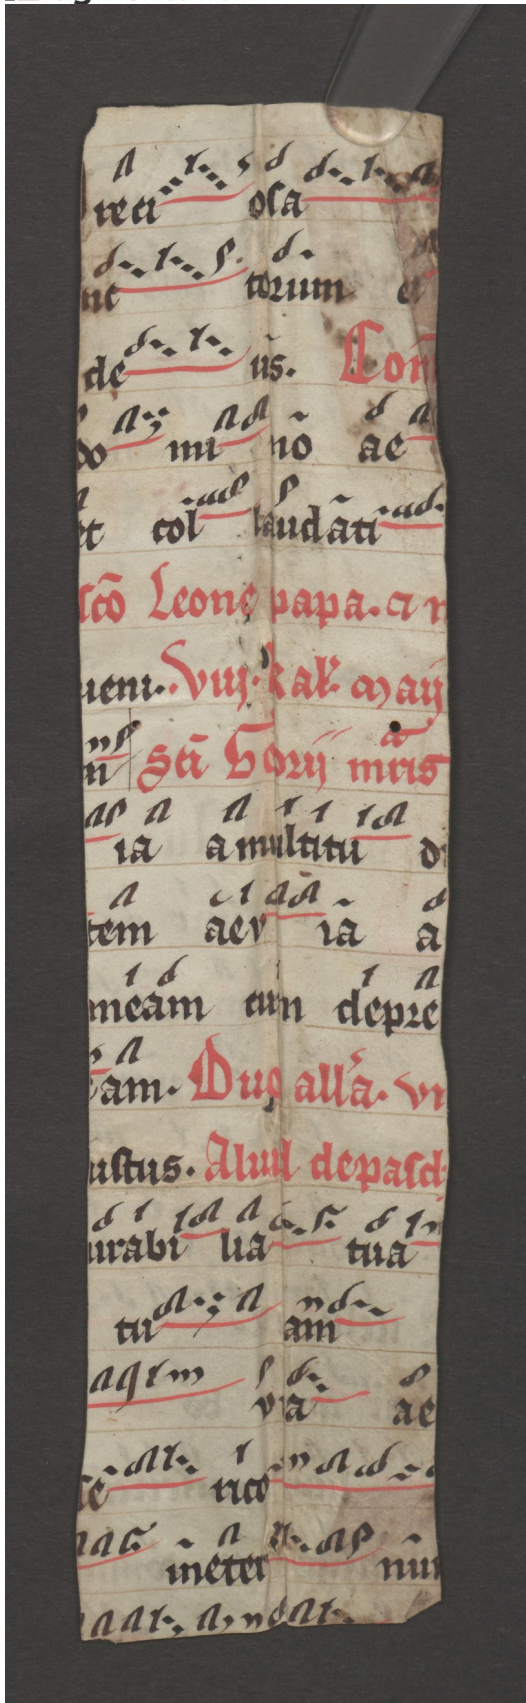 reci osa
torum et
de us.
do mi no ae
et col laudati
sco Leone papa. a
ueni. viij. kal. maij
Sci Gorij mris
ia a multitu
tem aev ia a
meam cum depre
am. Duo all'a. vi
iustus. Aliud de pasch
mirabi lia tua
tu am
via ae
rico
in eter num